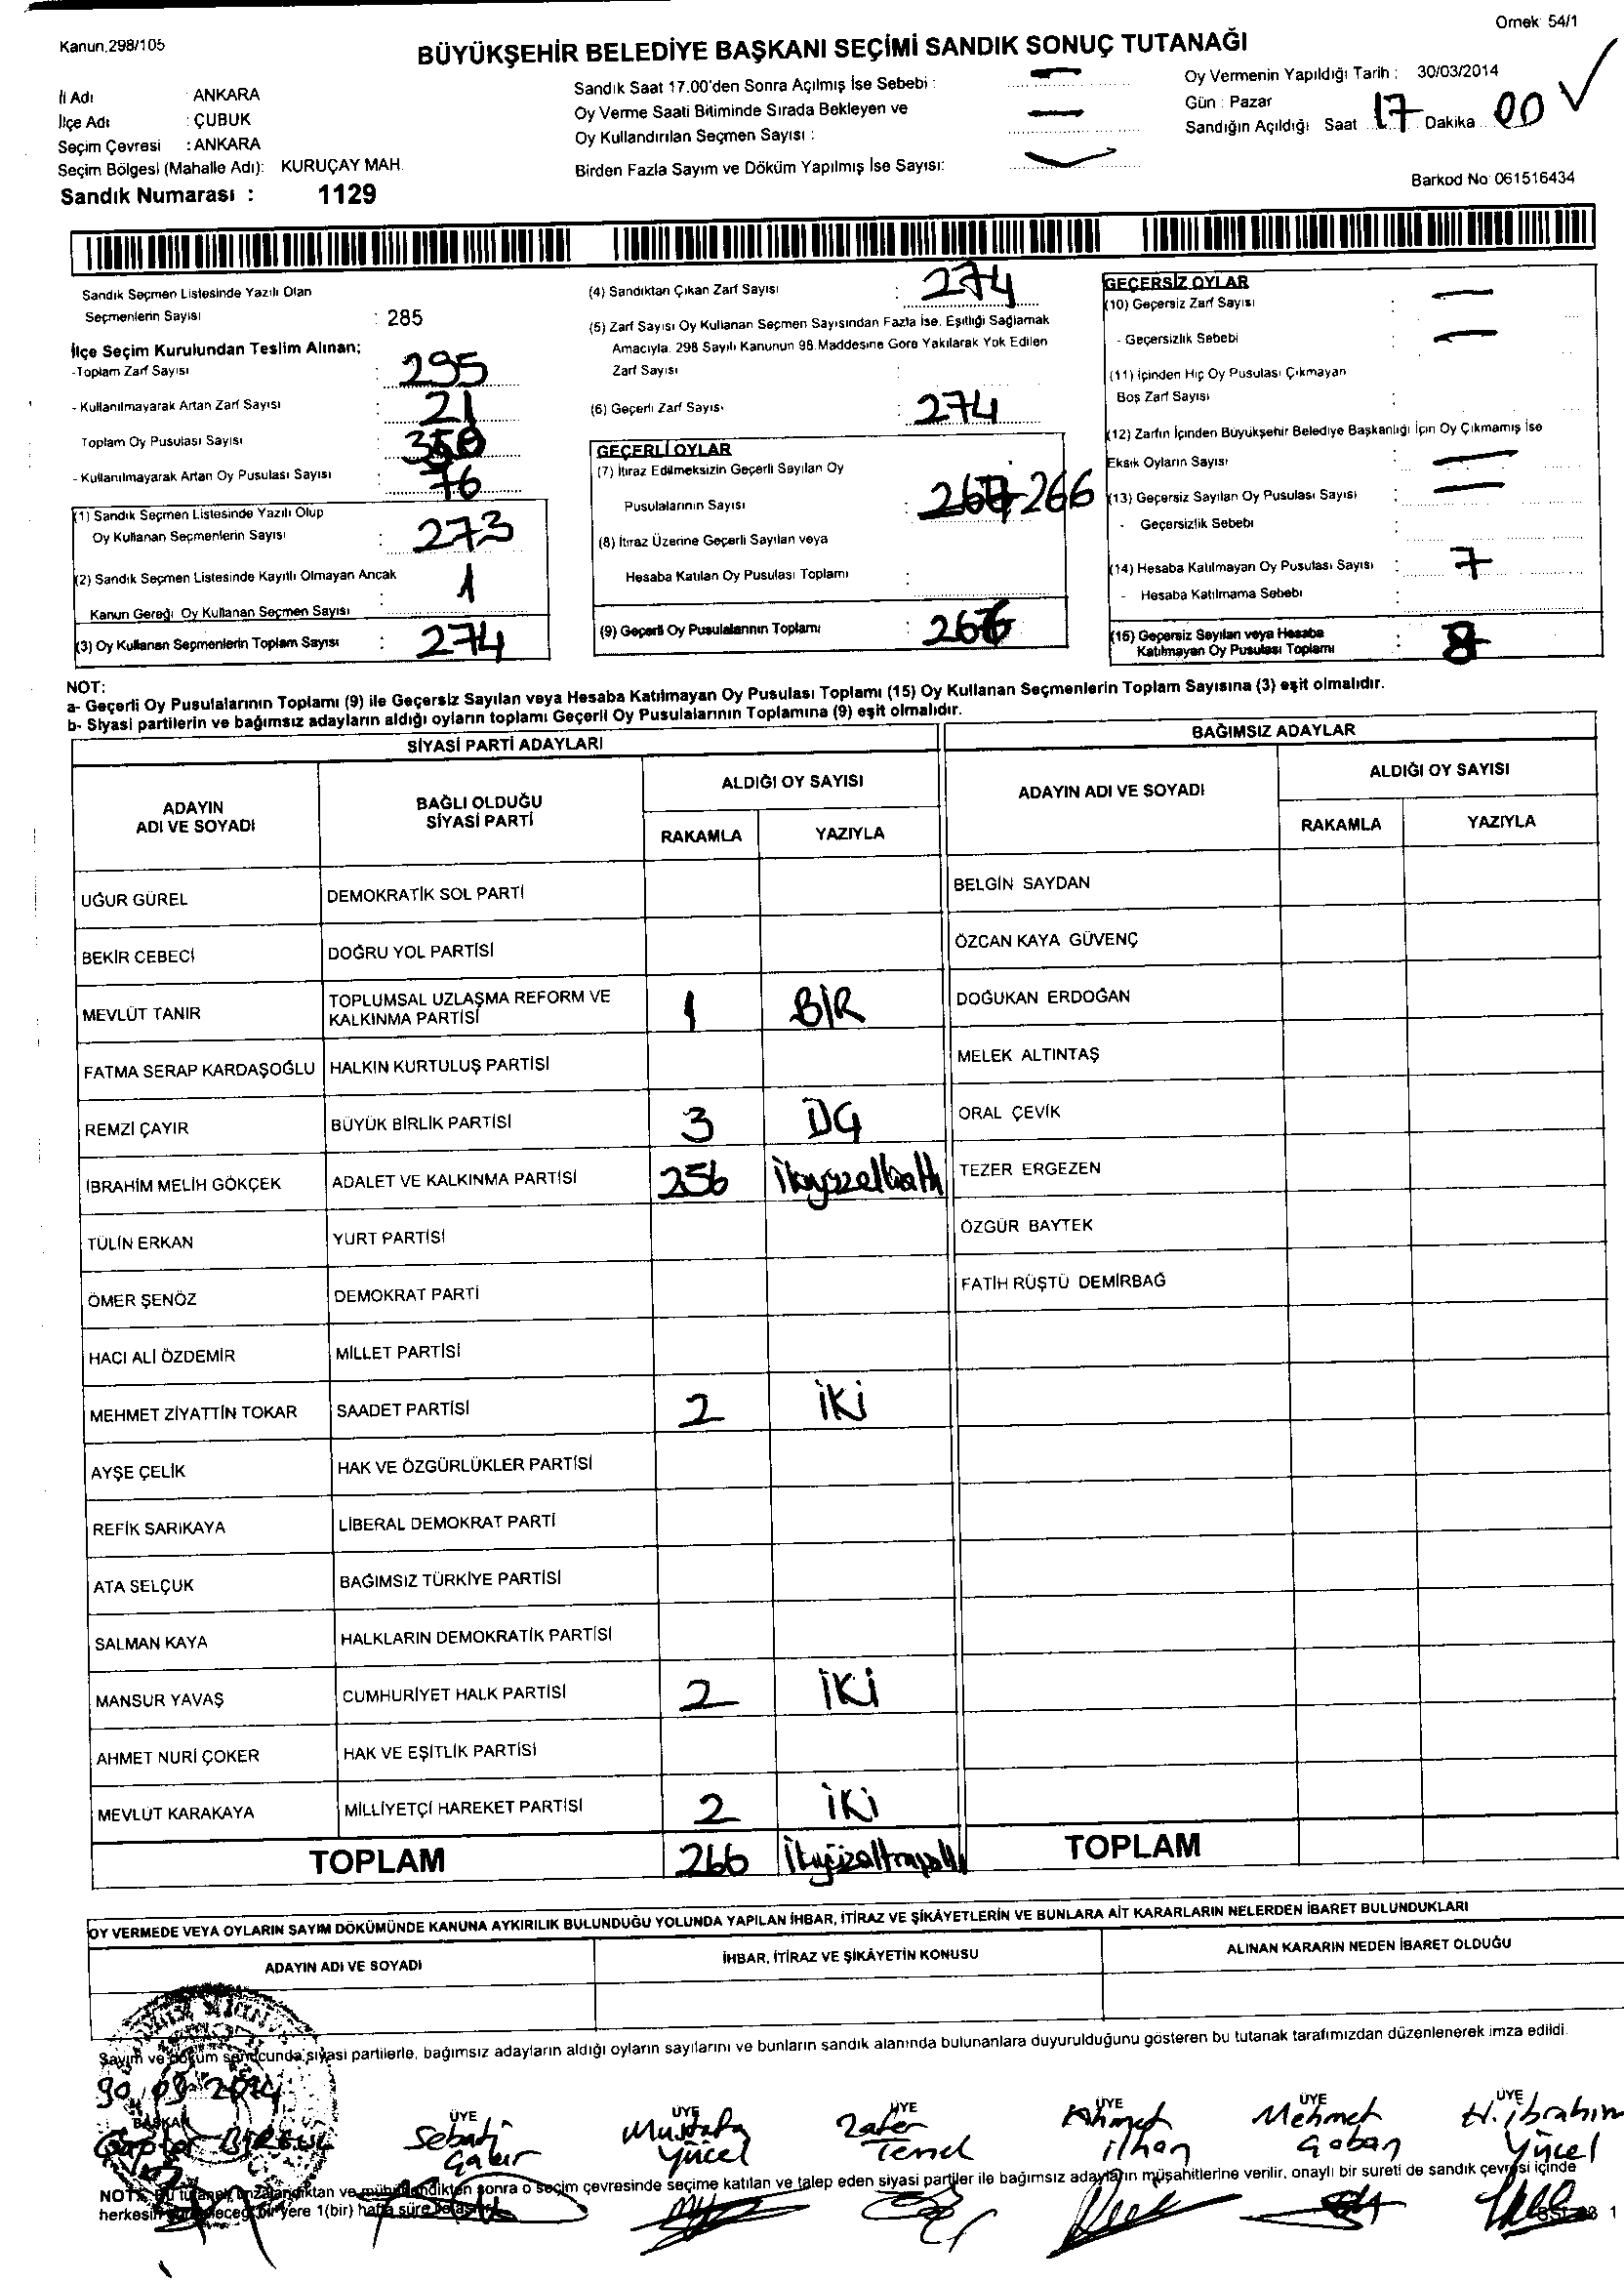 Ornek 54/1
Kanun.298/105
BÜYÜKŞEHİR BELEDİYE BAŞKANI SEÇİMİ SANDIK SONUÇ TUTANAĞI
İl Adı : ANKARA
İlçe Adı : ÇUBUK
Seçim Çevresi : ANKARA
Seçim Bölgesi (Mahalle Adı): KURUÇAY MAH.
Sandık Numarası : 1129
Sandık Saat 17.00'den Sonra Açılmış İse Sebebi : —
Oy Verme Saati Bitiminde Sırada Bekleyen ve
Oy Kullandırılan Seçmen Sayısı : —
Birden Fazla Sayım ve Döküm Yapılmış İse Sayısı:
Oy Vermenin Yapıldığı Tarih : 30/03/2014
Gün : Pazar
Sandığın Açıldığı Saat 17 Dakika 00
Barkod No: 061516434
Sandık Seçmen Listesinde Yazılı Olan
Seçmenlerin Sayısı : 285
İlçe Seçim Kurulundan Teslim Alınan;
-Toplam Zarf Sayısı : 295
- Kullanılmayarak Artan Zarf Sayısı : 21
Toplam Oy Pusulası Sayısı : 350
- Kullanılmayarak Artan Oy Pusulası Sayısı 76
(1) Sandık Seçmen Listesinde Yazılı Olup
Oy Kullanan Seçmenlerin Sayısı : 273
(2) Sandık Seçmen Listesinde Kayıtlı Olmayan Ancak
Kanun Gereği Oy Kullanan Seçmen Sayısı : 1
(3) Oy Kullanan Seçmenlerin Toplam Sayısı : 274
(4) Sandıktan Çıkan Zarf Sayısı : 274
(5) Zarf Sayısı Oy Kullanan Seçmen Sayısından Fazla İse, Eşitliği Sağlamak
Amacıyla, 298 Sayılı Kanunun 98.Maddesine Gore Yakılarak Yok Edilen
Zarf Sayısı :
(6) Geçerli Zarf Sayısı : 274
GEÇERLİ OYLAR
(7) İtiraz Edilmeksizin Geçerli Sayılan Oy
Pusulalarının Sayısı : 266
(8) İtiraz Üzerine Geçerli Sayılan veya
Hesaba Katılan Oy Pusulası Toplamı :
(9) Geçerli Oy Pusulalarının Toplamı : 266
GEÇERSİZ OYLAR
(10) Geçersiz Zarf Sayısı : —
- Geçersizlik Sebebi : —
(11) İçinden Hiç Oy Pusulası Çıkmayan
Boş Zarf Sayısı :
(12) Zarfın İçinden Büyükşehir Belediye Başkanlığı İçin Oy Çıkmamış İse
Eksik Oyların Sayısı : —
(13) Geçersiz Sayılan Oy Pusulası Sayısı : —
- Geçersizlik Sebebi :
(14) Hesaba Katılmayan Oy Pusulası Sayısı : 7
- Hesaba Katılmama Sebebi :
(15) Geçersiz Sayılan veya Hesaba
Katılmayan Oy Pusulası Toplamı : 8
NOT:
a- Geçerli Oy Pusulalarının Toplamı (9) ile Geçersiz Sayılan veya Hesaba Katılmayan Oy Pusulası Toplamı (15) Oy Kullanan Seçmenlerin Toplam Sayısına (3) eşit olmalıdır.
b- Siyasi partilerin ve bağımsız adayların aldığı oyların toplamı Geçerli Oy Pusulalarının Toplamına (9) eşit olmalıdır.
SİYASİ PARTİ ADAYLARI
ADAYIN ADI VE SOYADI BAĞLI OLDUĞU SİYASİ PARTİ ALDIĞI OY SAYISI RAKAMLA YAZIYLA
UĞUR GÜREL DEMOKRATİK SOL PARTİ
BEKİR CEBECİ DOĞRU YOL PARTİSİ
MEVLÜT TANIR TOPLUMSAL UZLAŞMA REFORM VE KALKINMA PARTİSİ 1 BİR
FATMA SERAP KARDAŞOĞLU HALKIN KURTULUŞ PARTİSİ
REMZİ ÇAYIR BÜYÜK BİRLİK PARTİSİ 3
İBRAHİM MELİH GÖKÇEK ADALET VE KALKINMA PARTİSİ 256
TÜLİN ERKAN YURT PARTİSİ
ÖMER ŞENÖZ DEMOKRAT PARTİ
HACI ALİ ÖZDEMİR MİLLET PARTİSİ
MEHMET ZİYATTİN TOKAR SAADET PARTİSİ 2 İKİ
AYŞE ÇELİK HAK VE ÖZGÜRLÜKLER PARTİSİ
REFİK SARIKAYA LİBERAL DEMOKRAT PARTİ
ATA SELÇUK BAĞIMSIZ TÜRKİYE PARTİSİ
SALMAN KAYA HALKLARIN DEMOKRATİK PARTİSİ
MANSUR YAVAŞ CUMHURİYET HALK PARTİSİ 2 İKİ
AHMET NURİ ÇOKER HAK VE EŞİTLİK PARTİSİ
MEVLÜT KARAKAYA MİLLİYETÇİ HAREKET PARTİSİ 2 İKİ
TOPLAM 266
BAĞIMSIZ ADAYLAR
ADAYIN ADI VE SOYADI ALDIĞI OY SAYISI RAKAMLA YAZIYLA
BELGİN SAYDAN
ÖZCAN KAYA GÜVENÇ
DOĞUKAN ERDOĞAN
MELEK ALTINTAŞ
ORAL ÇEVİK
TEZER ERGEZEN
ÖZGÜR BAYTEK
FATİH RÜŞTÜ DEMİRBAĞ
TOPLAM
OY VERMEDE VEYA OYLARIN SAYIM DÖKÜMÜNDE KANUNA AYKIRILIK BULUNDUĞU YOLUNDA YAPILAN İHBAR, İTİRAZ VE ŞİKÂYETLERİN VE BUNLARA AİT KARARLARIN NELERDEN İBARET BULUNDUKLARI
ADAYIN ADI VE SOYADI İHBAR, İTİRAZ VE ŞİKÂYETİN KONUSU ALINAN KARARIN NEDEN İBARET OLDUĞU
Sayım ve döküm sonucunda siyasi partilerle, bağımsız adayların aldığı oyların sayılarını ve bunların sandık alanında bulunanlara duyurulduğunu gösteren bu tutanak tarafımızdan düzenlenerek imza edildi.
30.03.2014
BAŞKAN ÜYE ÜYE ÜYE ÜYE ÜYE ÜYE
Sebati Mustafa Yücel Zafer Temel Ahmet ilhan Mehmet Çoban H. ibrahim Yücel
NOT: Bu tutanak imzalandıktan ve mühürlendikten sonra o seçim çevresinde seçime katılan ve talep eden siyasi partiler ile bağımsız adayların müşahitlerine verilir, onaylı bir sureti de sandık çevresi içinde
herkesin bir yere 1(bir) hafta süre